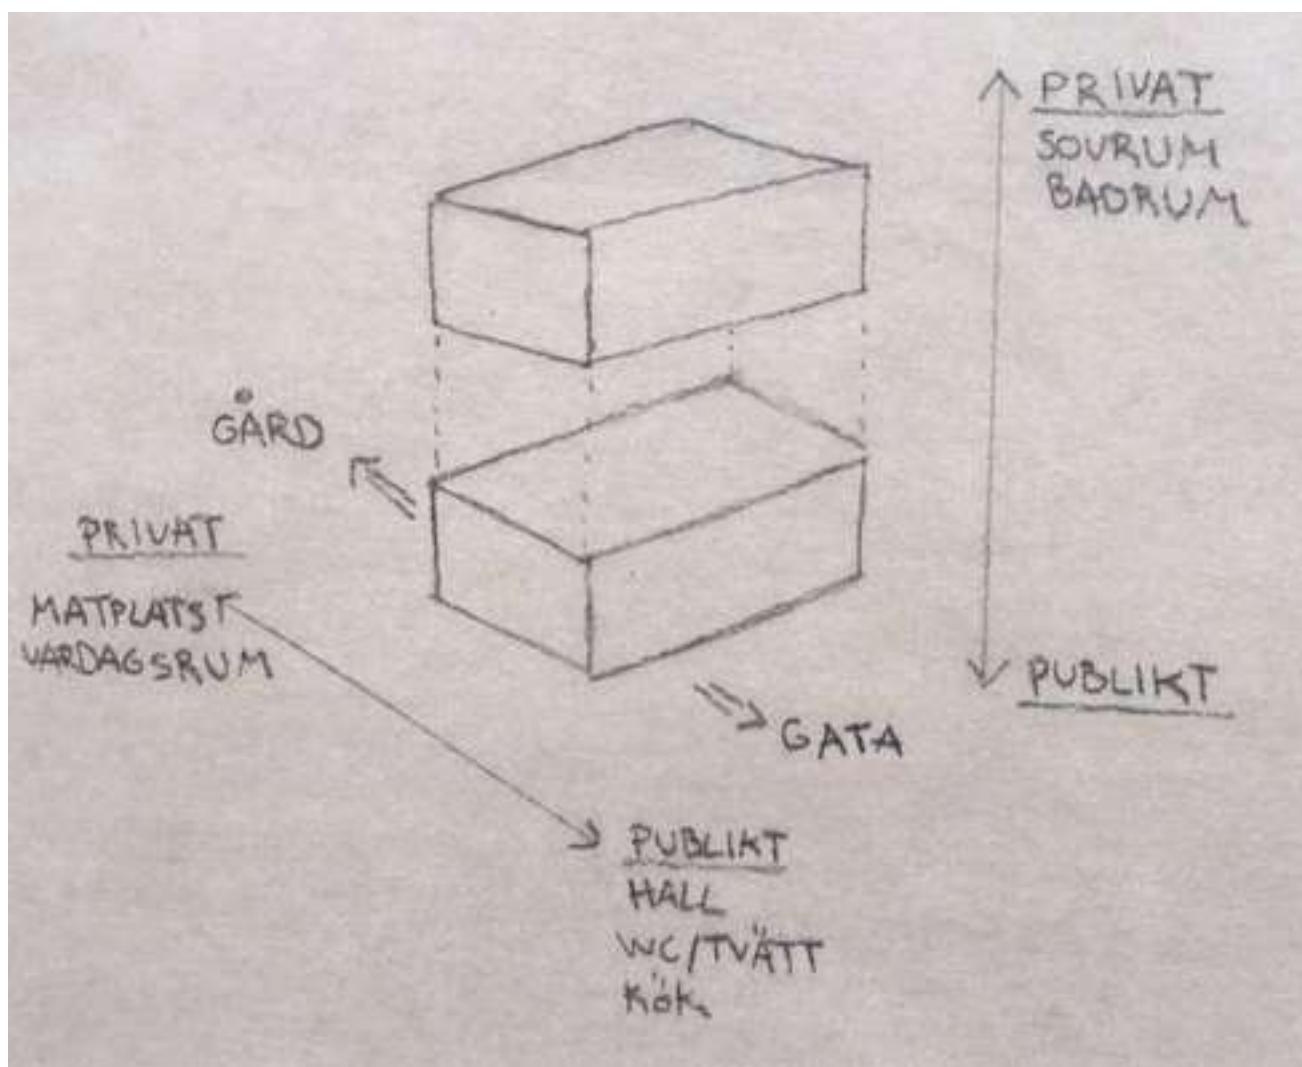 PRIVAT
SOVRUM
BADRUM
GÅRD
PRIVAT
MATPLATS
VARDAGSRUM
PUBLIKT
GATA
PUBLIKT
HALL
WC/TVÄTT
KÖK